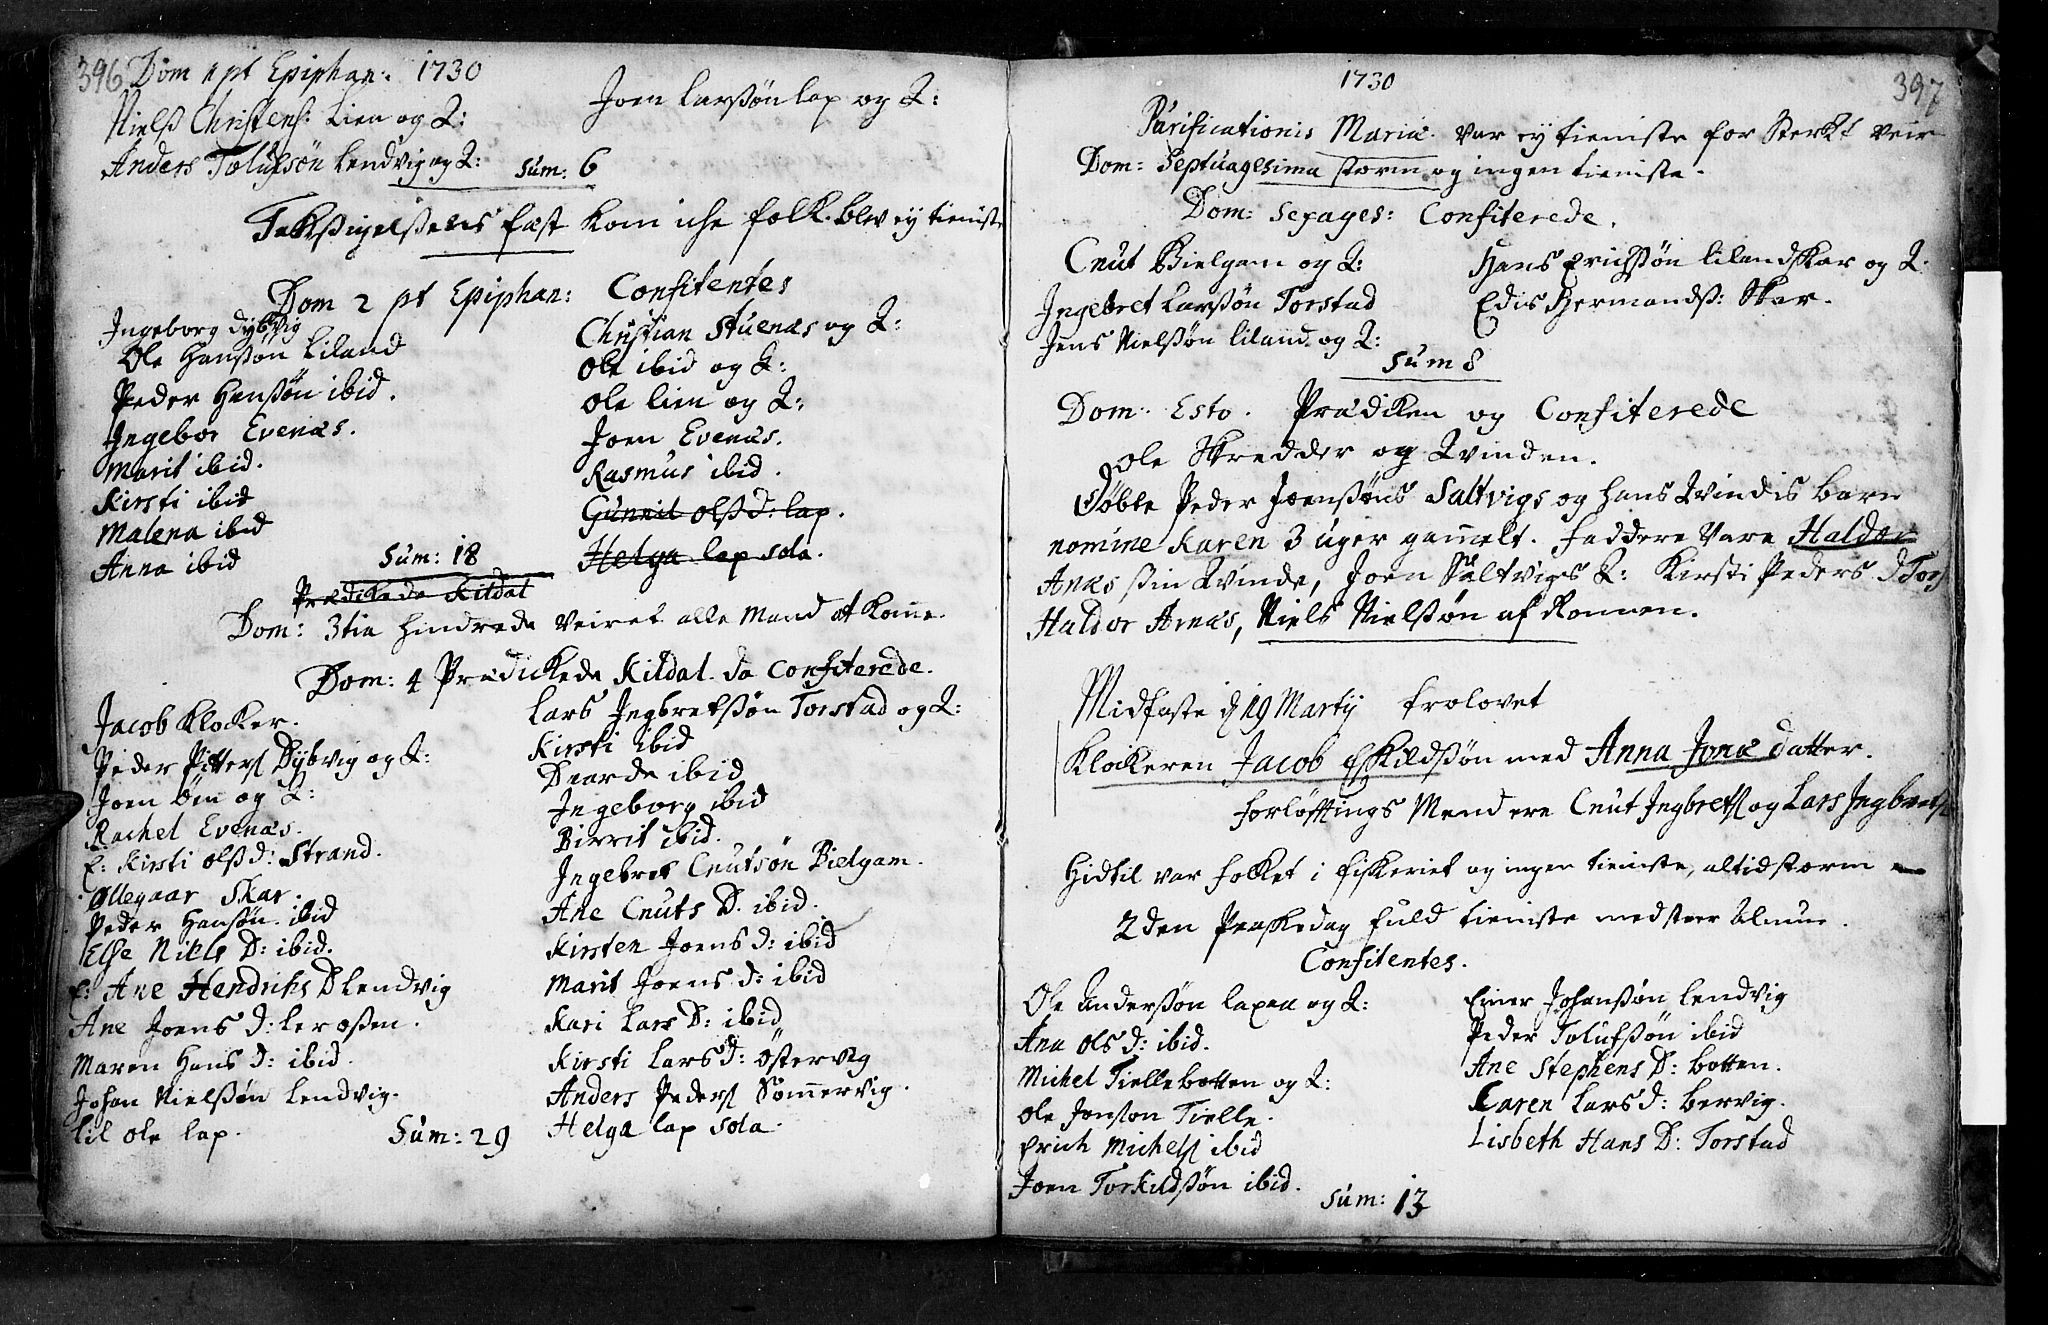 396 Dom 1 pt Epiphan: 1730
Nielß Christens: Lien og Q:
Anders Tolufsøn Lendvig og Q:
Joen Larßøn lap og Q:
Sum: 6
Takßigelßens fæst kom iche folk. blev ey tieniste
Dom 2 pt Epiphan: Confitentes
Ingeborg Dybvig
Ole Hanßøn Liland
Peder Hanßøn ibid.
Ingebor Evenæs.
Marit ibid.
Kirsti ibid
Malena ibid
Anna ibid
Christian Stuenæs og Q:
Ole ibid og Q:
Ole lien og Q:
Joen Evenæs.
Rasmus ibid.
Gunnil olß d: lap.
Helga lap sola.
Sum: 18
Prædikede Kildal
Dom: 3tia hindrede veiret alle Mand at komme.
Dom: 4 Prædickede Kildal. da confiterede.
Jacob Klocker.
Peder Pitters Dybvig og Q:
Joen Øen og Q:
Rachel Evenæs.
E: Kirsti olß d: Strand.
Ollegaar Skar.
Peder Hansøn. ibid
Else Niels D: ibid.
E: Ane Hendrichs D Lendvig
Ane Joens d: Leroßen.
Maren Hans d: ibid.
Johan Nielßøn Lendvig.
lil ole lap.
Sum: 29
Lars Ingbretßøn Torstad og Q:
Kirsti ibid
Deorde ibid
Ingeborg ibid
Birrit ibid.
Ingebret Cnutsøn Bielgam.
Ane Cnuts D. ibid.
Kirsten Joens d: ibid
Marit Joens d: ibid
Kari Lars D: ibid
Kirsti Lars d: Østervig
Anders Peders Sommervig.
Helga lap sola.
1730
397
Purificationis Mariæ. var ey tieniste for sterkt veir
Dom: Septuagesima storm og ingen tieniste.
Dom: Sexages: Confiterede.
Cnut Bielgam og Q:
Ingebret Larßøn Torstad
Jens Nielßøn liland. og Q:
Hans Erichßøn lilandskar og Q.
Edis Hermandß: Skar.
Sum 8
Dom: Esto. Prædiken og Confiterede
Ole Skredder og Qvinden.
Døbte Peder Joenßøns Saltvigs og hans Qvindis barn
nomine Karen 3 uger gammelt. faddere vare Haldor
Anæs ßin Qvinde, Joen Saltvigs Q: Kirsti Peders d Tors
Haldor Arnæs, Niels Nielßøn af Romen.
Midfaste d 19 Martij trolovet
Klockeren Jacob Eskildßøn med Anna Jonæ datter.
Forløftings Mend ere Cnut Ingbrets og Lars Ingbrets
Hidtil var folket i fiskeriet og ingen tieniste, altid storm
2den Paaskedag fuld tieniste med stoer Almue.
Confitentes.
Ole Anderßøn laxaa og Q:
Ana Ols d: ibid.
Michel Tiellebotten og Q:
Ole Jonson Tielle.
Erich Michels ibid
Joen Torkildßøn ibid.
Einer Johanßøn Lendvig
Peder Tolufßøn ibid
Ane Stephens D: botten.
Karen Lars d: Bervig.
Lisbeth Hans D: Torstad
Sum: 13